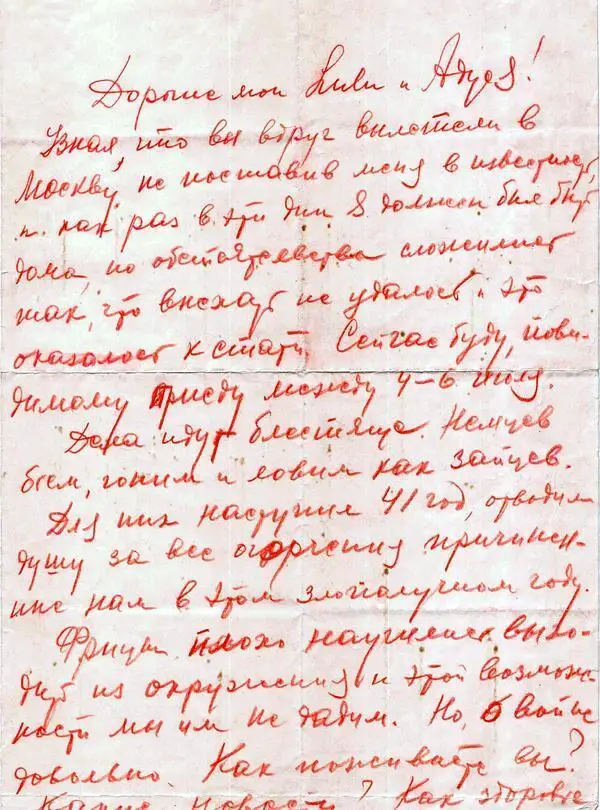 Дорогие мои Лили и Адуся!
Узнал, что вы вдруг вылетели в
Москву, не поставив меня в известность,
и как раз в эти дни я должен был быть
дома, но обстоятельства сложились
так, что выехать не удалось и это
оказалось кстати. Сейчас буду, пови-
димому приеду между 4-6 июля.
Дела идут блестяще. Немцев
бьем, гоним и ловим как зайцев.
Для них наступил 41 год, отводим
душу за все огорчения причинен-
ные нам в этом злополучном году.
Фрицы плохо научились выхо-
дить из окружения и этой возмож-
ности мы им не дадим. Но, о войне
довольно. Как поживаете вы?
Какие новости? Как здоровье